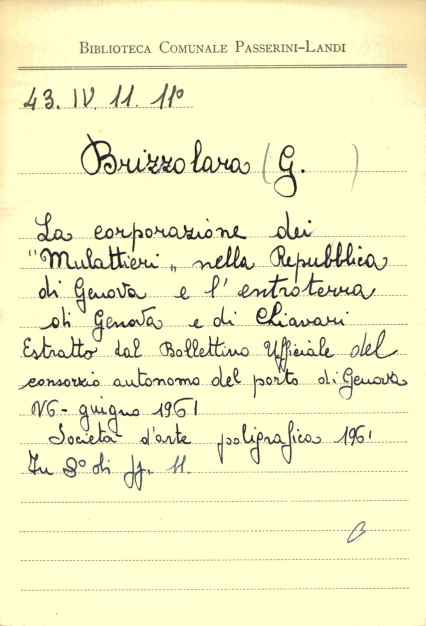 BIBLIOTECA COMUNALE PASSERINI-LANDI
43. IV. 11. 11º
Brizzolara (G. )
La corporazione dei
"Mulattieri„ nella Repubblica
di Genova e l'entroterra
di Genova e di Chiavari
Estratto dal Bollettino Ufficiale del
consorzio autonomo del porto di Genova
N6 - giugno 1961
Società d'arte poligrafica 1961
In 8º di pp. 11.